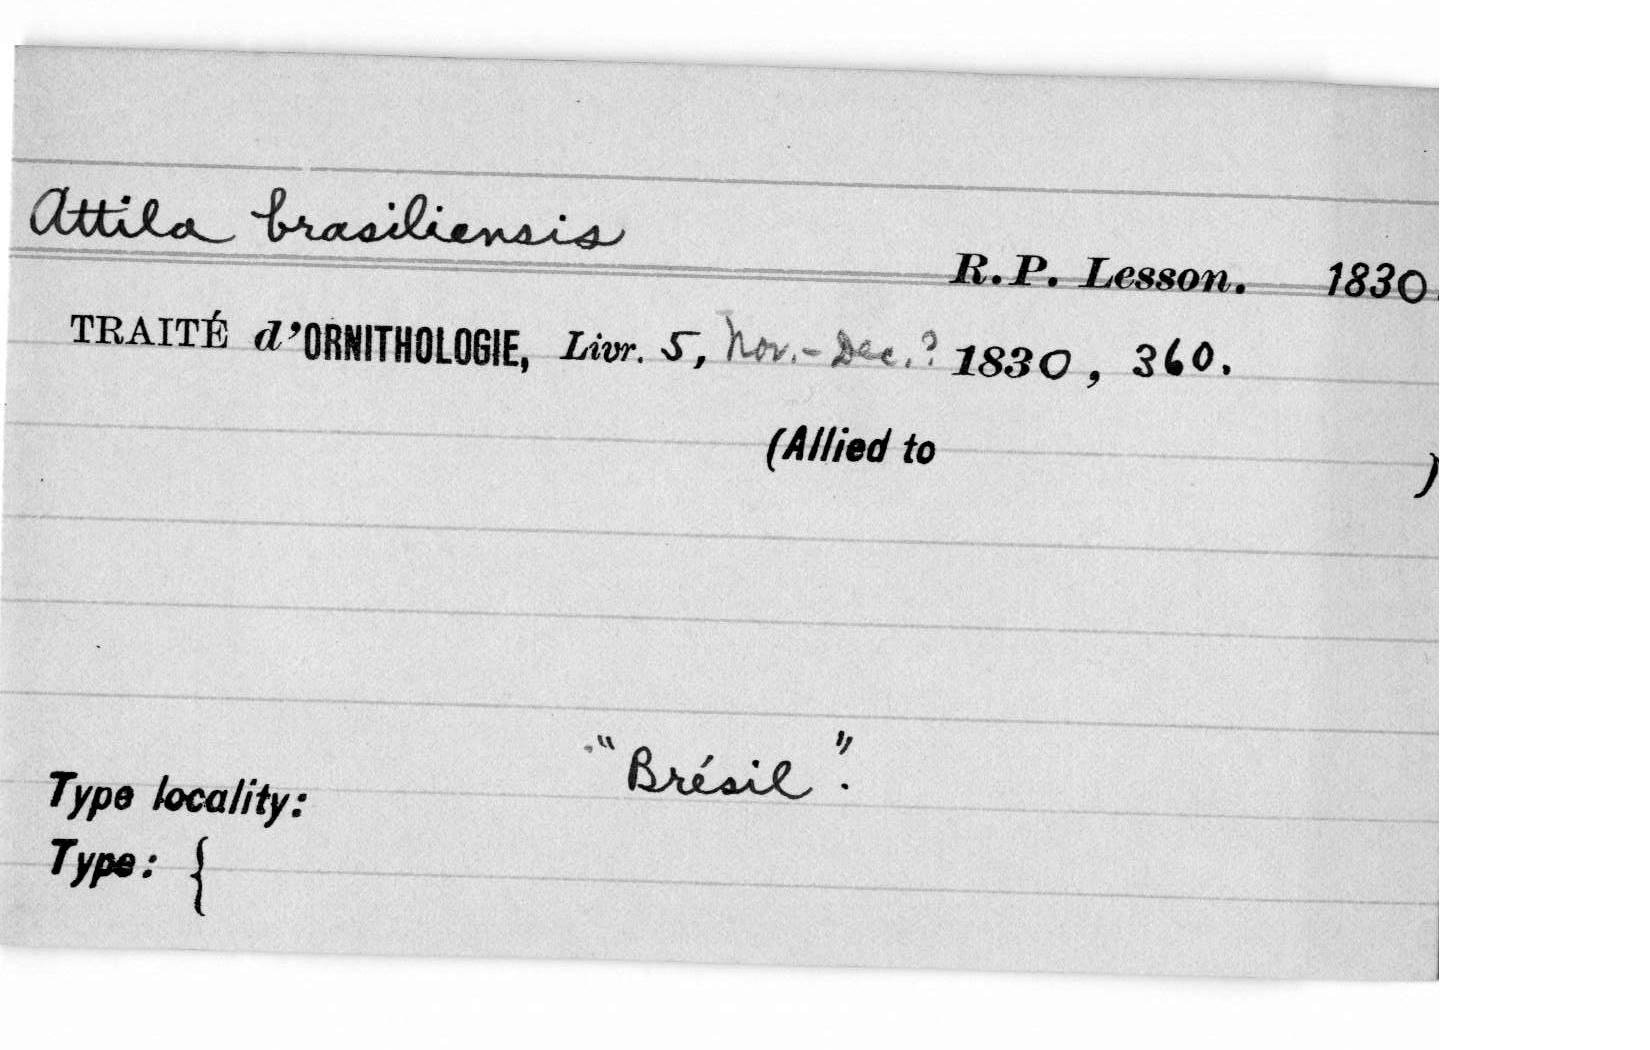 Attila brasiliensis
R. P. Lesson. 1830.
TRAITÉ d'ORNITHOLOGIE, Livr. 5, Nov.-Dec.? 1830, 360.
(Allied to )
"Brésil".
Type locality:
Type: {